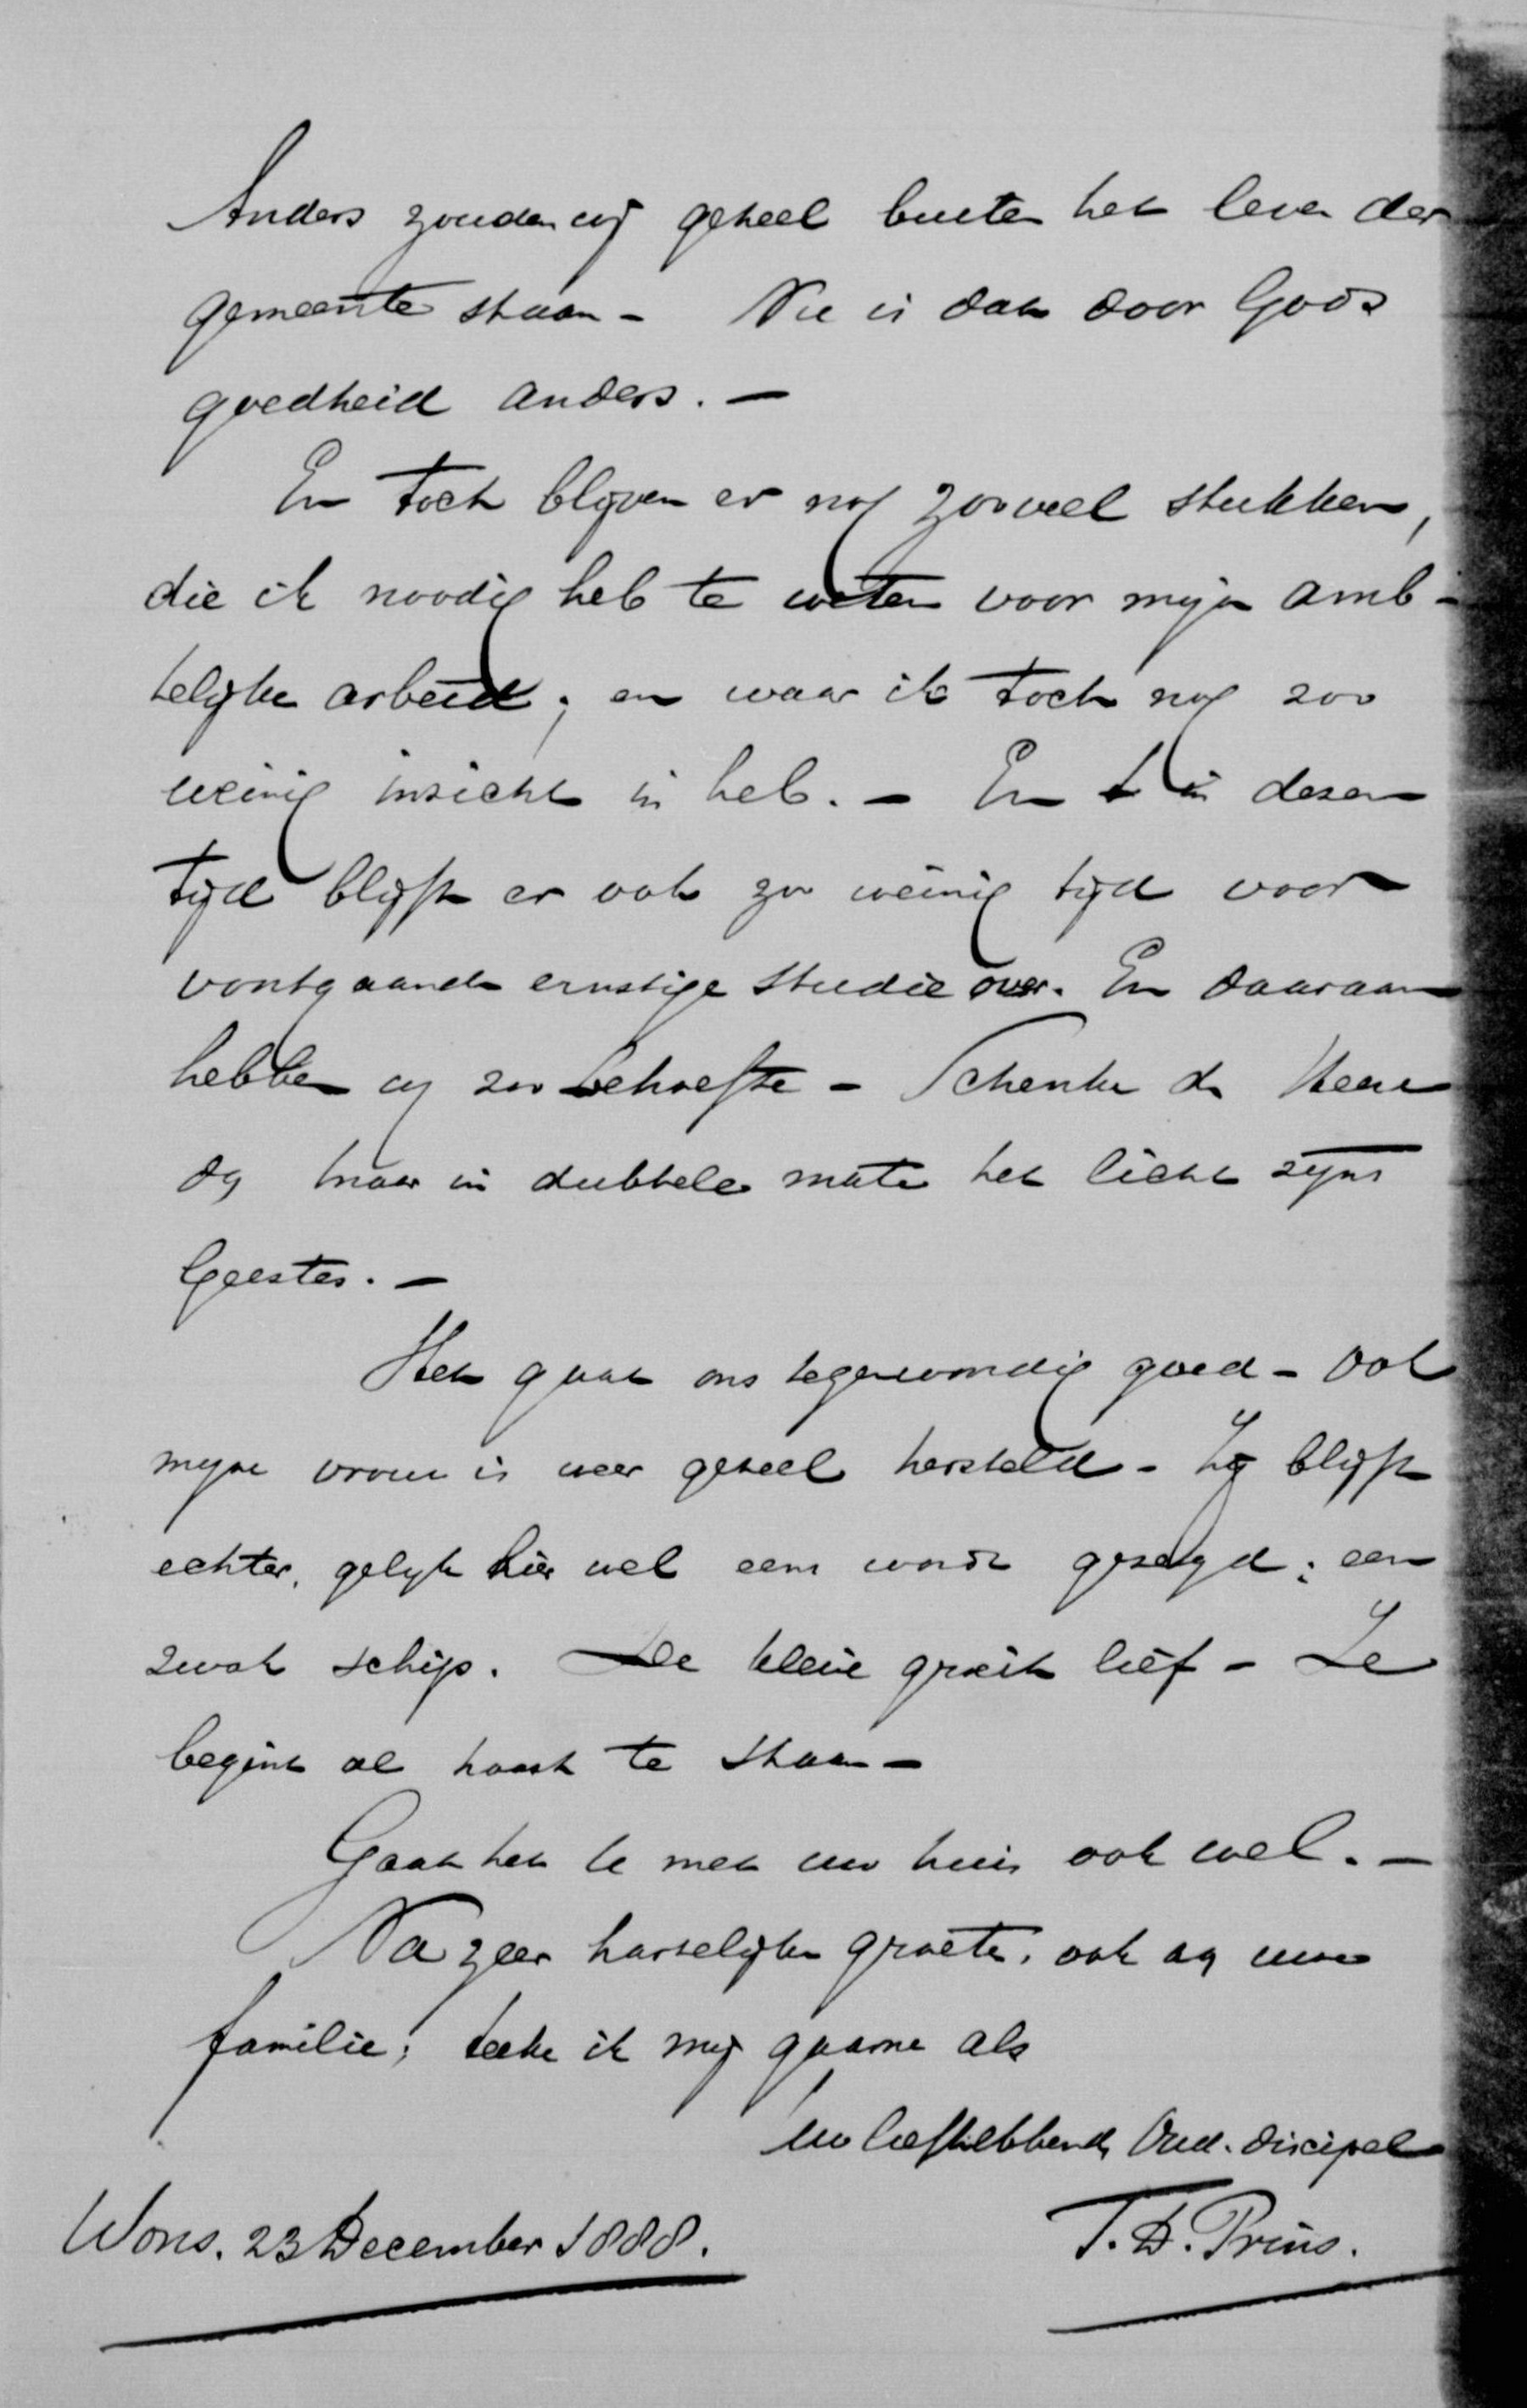 Anders zouden wij geheel buiten het leven der
gemeente staan - Nu is dat door Gods
goedheid anders. -
En toch blijven er nog zooveel stukken,
die ik noodig heb te weten voor mijn amb-
telijke arbeid; en waar ik toch nog zoo
weinig inzicht in heb. - En in dezen
tijd blijft er ook zoo weinig tijd voor
voortgaande ernstige studie over. En daaraan
hebben wij zoo behoefte - Schenke de Heere
daar in dubbele mate het licht zijns
Geestes. -
Het gaat ons tegenwoordig goed - Ook
mijne vrouw is weer geheel hersteld - Zij blijft
echter, gelijk hier wel eens wordt gezegd; een
zwak schip. De kleine groeit lief - Ze
begint al haast te staan -
Gaat het U met uw huis ook wel. -
Na zeer hartelijke groete, ook aan uwe
familie; teeken ik mij gaarne als
Uw liefhebbende Oud-discipel
Wons. 23 December 1888. T. D. Prins.